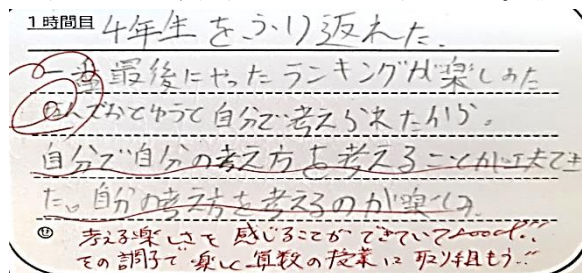 1時間目 4年生をふり返れた。
一番最後にやったランキングが楽しかった
なんでかとゆうと自分で考えられたから。
自分で自分の考え方を考えることが工夫でき
た。自分の考え方を考えるのが楽しい。
考える楽しさを感じることができていてGood!!
その調子で楽しく算数の授業に取り組もう!!